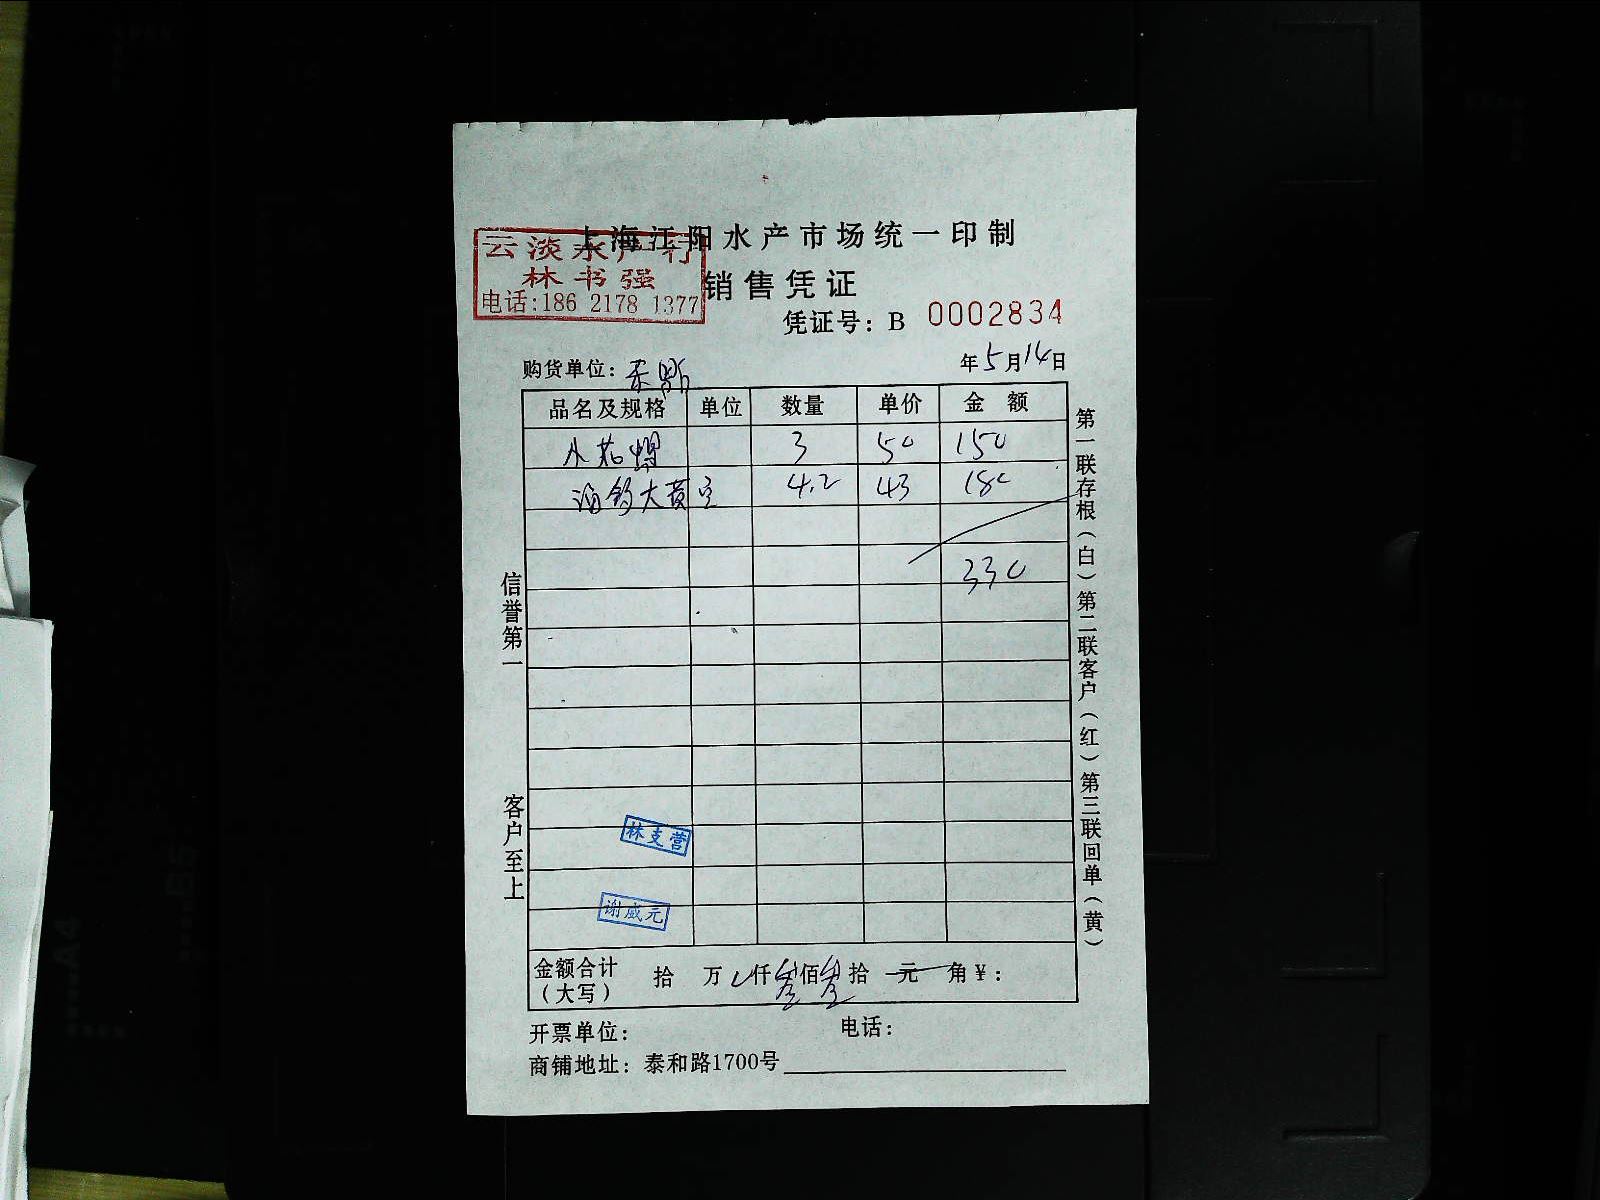 上海江阳水产市场统一印制
云淡水产行
林书强
电话:186 2178 1377
销售凭证
凭证号: B 0002834
购货单位:
年5月14日
品名及规格 单位 数量 单价 金额
3 50 150
海钓大黄 4.2 43 180
330
信誉第一
客户至上
第一联存根(白)第二联客户(红)第三联回单(黄)
林支营
谢威元
金额合计(大写) 拾 万 仟叁佰叁拾 元 角 ¥:
开票单位: 电话:
商铺地址: 泰和路1700号